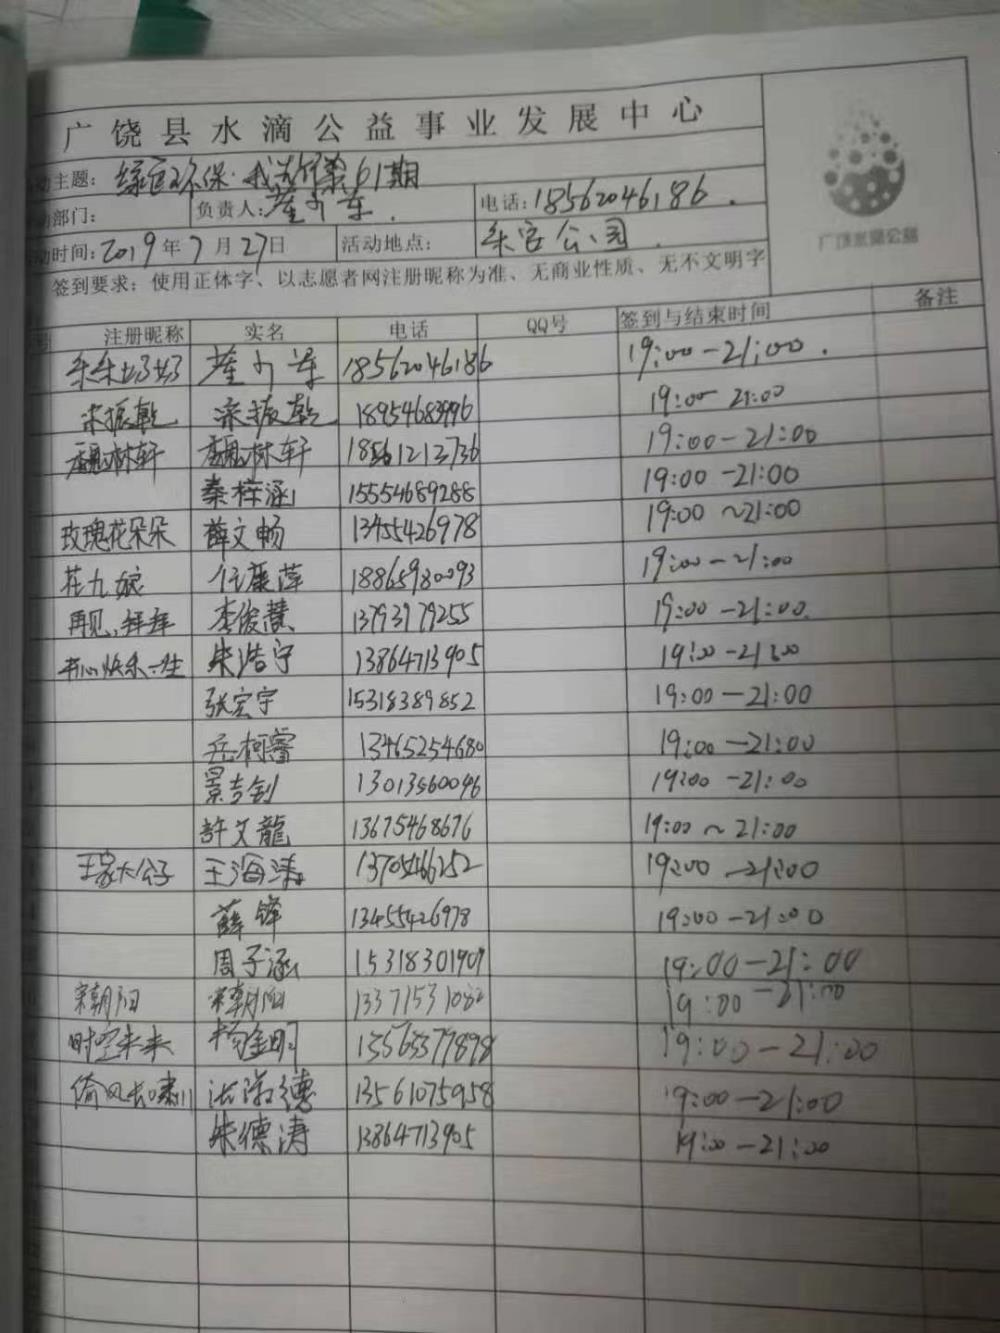 广饶县水滴公益事业发展中心
动主题: 绿色环保·我先行第61期
动部门: 负责人: 电话: 18562046186.
动时间: 2019年7月27日 活动地点: 乐安公园.
签到要求: 使用正体字、以志愿者网注册昵称为准、无商业性质、无不文明字
号 注册昵称 实名 电话 QQ号 签到与结束时间 备注
18562046186 19:00-21:00.
宋振乾 宋振乾 18954683996 19:00-21:00
魏林轩 魏林轩 18561212736 19:00-21:00
秦梓涵 15554689288 19:00-21:00
玫瑰花朵朵 薛文畅 13455426978 19:00~21:00
花九娘 任康萍 18865980093 19:00-21:00
再见,拜拜 李俊慧 13793179255 19:00-21:00.
开心快乐一生 朱浩宇 13864713905 19:00-21:00
张宏宇 15318389852 19:00-21:00
岳柯睿 13465254680 19:00-21:00
景吉钊 13013560096 19:00-21:00
許文龍 13675468676 19:00~21:00
王家大公子 王海涛 13705466252 19:00-21:00
薛锋 13455426978 19:00-21:00
周子涵 15318301909 19:00-21:00
宋朝阳 宋朝阳 13371531082 19:00-21:00
时空未来 杨金明 19:00-21:00
倚风长啸川 13561075958 19:00-21:00
朱德涛 13864713905 19:00-21:00